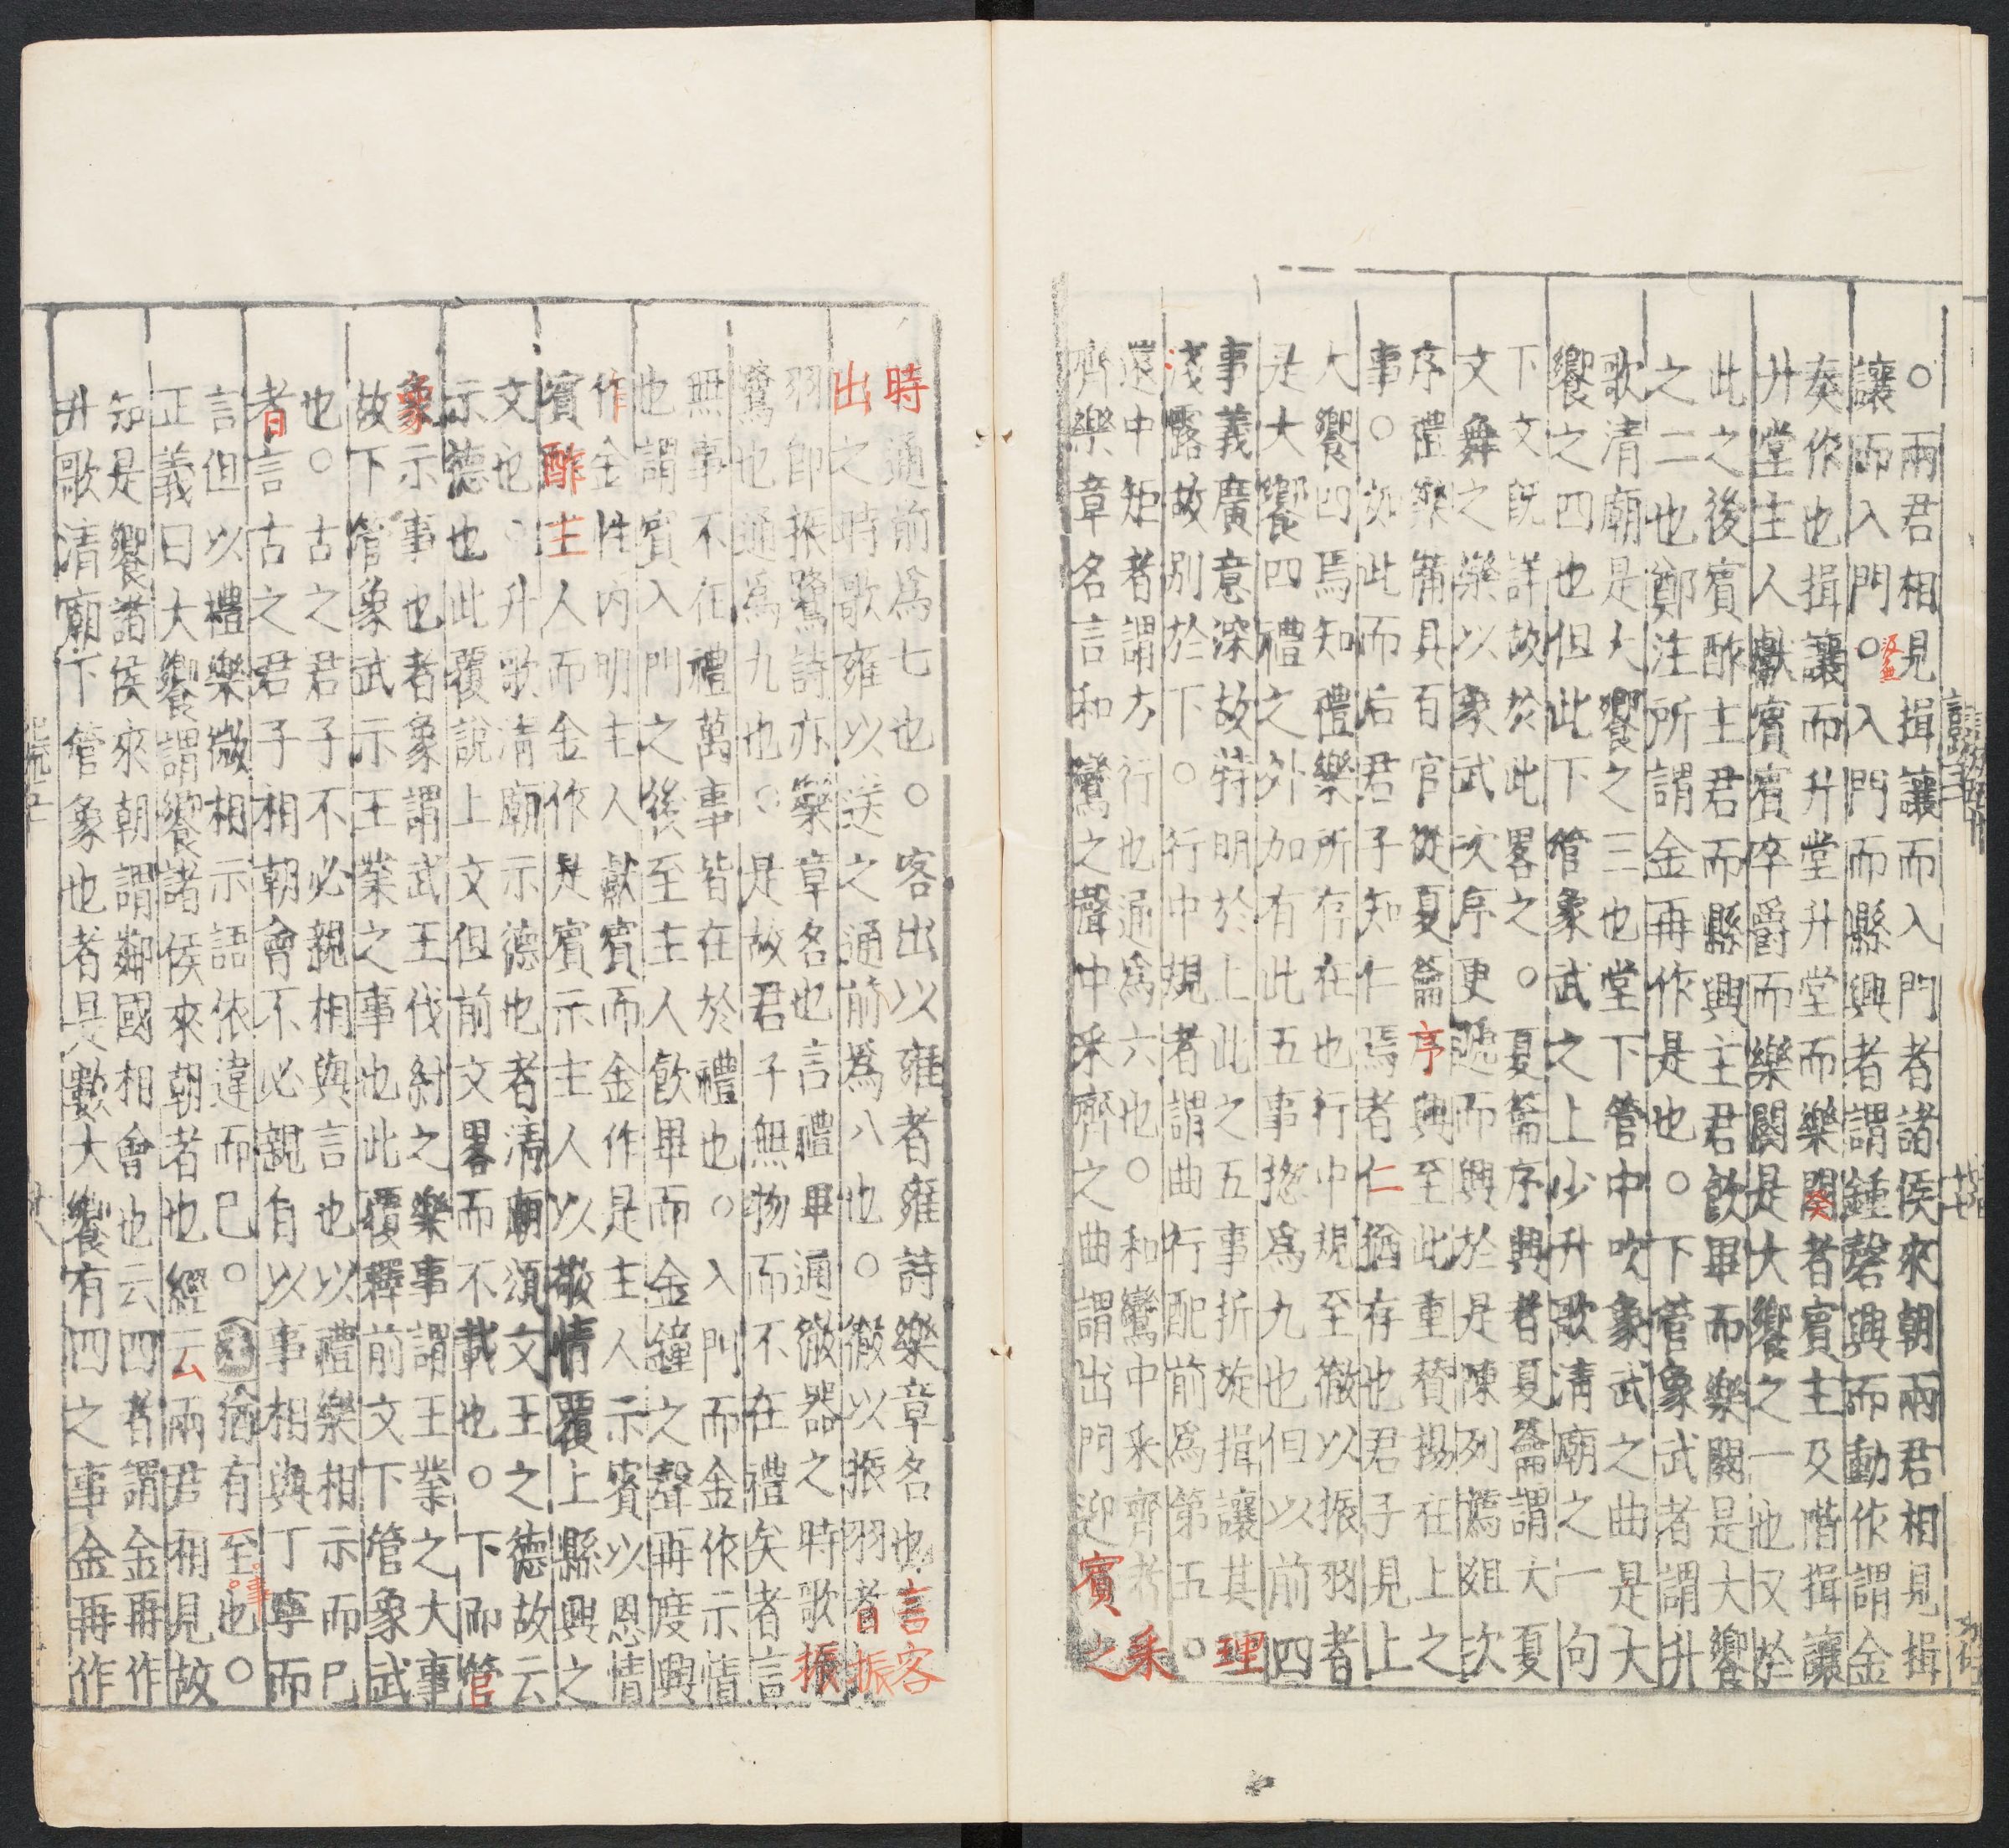 ○兩君相見揖讓而入門者諸侯來朝兩君相見揖
讓而入門○入門而縣興者謂鍾磬興而動作謂金
奏作也揖讓而升堂升堂而樂闋者賓主及階揖讓
升堂主人獻賓賓卒爵而樂闋是大饗之一也又於
此之後賓酢主君而縣興主君飲畢而樂闋是大饗
之二也鄭注所謂金再作是也○下管象武者謂升
歌清廟是大饗之三也堂下管中吹象武之曲是大
饗之四也但此下管象武之上少升歌清廟之一句
下文旣詳故於此畧之○夏籥序興者夏籥謂大夏
文舞之樂以象武次序更遞而興於是陳列薦俎次
序禮樂備具百官從夏籥序興至此重贊揚在上之
事○如此而后君子知仁焉者仁猶存也君子見上
大饗四焉知禮樂所存在也行中規至徹以振羽者
是大饗四禮之外加有此五事揔爲九也但以前四
事義廣意深故特明於上此之五事折旋揖讓其理
淺露故別於下○行中規者謂曲行配前爲第五○
還中矩者謂方行也通爲六也○和鸞中采齊者采
齊樂章名言和鸞之聲中采齊之曲謂出門迎賓之
時通前爲七也○客出以雍者雍詩樂章名也言客
出之時歌雍以送之通前爲八也○徹以振羽者振
羽卽振鷺詩亦樂章名也言禮畢通徹器之時歌振
鷺也通爲九也○是故君子無物而不在禮矣者言
無事不在禮萬事皆在於禮也○入門而金作示情
也謂賓入門之後至主人飲畢而金鐘之聲再度興
作金性內明主人獻賓而金作是主人示賓以恩情
賓酢主人而金作是賓示主人以敬情覆上縣興之
文也○升歌清廟示德也者清廟頌文王之德故云
示德也此覆說上文但前文畧而不載也○下而管
象示事也者象謂武王伐紂之樂事謂王業之大事
故下管象武示王業之事也此覆釋前文下管象武
也○古之君子不必親相與言也以禮樂相示而已
者言古之君子相朝會不必親自以事相與丁寧而
言但以禮樂微相示語依違而已○猶有至事也○
正義曰大饗謂饗諸侯來朝者也經云兩君相見故
知是饗諸侯來朝謂鄰國相會也云四者謂金再作
升歌清廟下管象也者是數大饗有四之事金再作